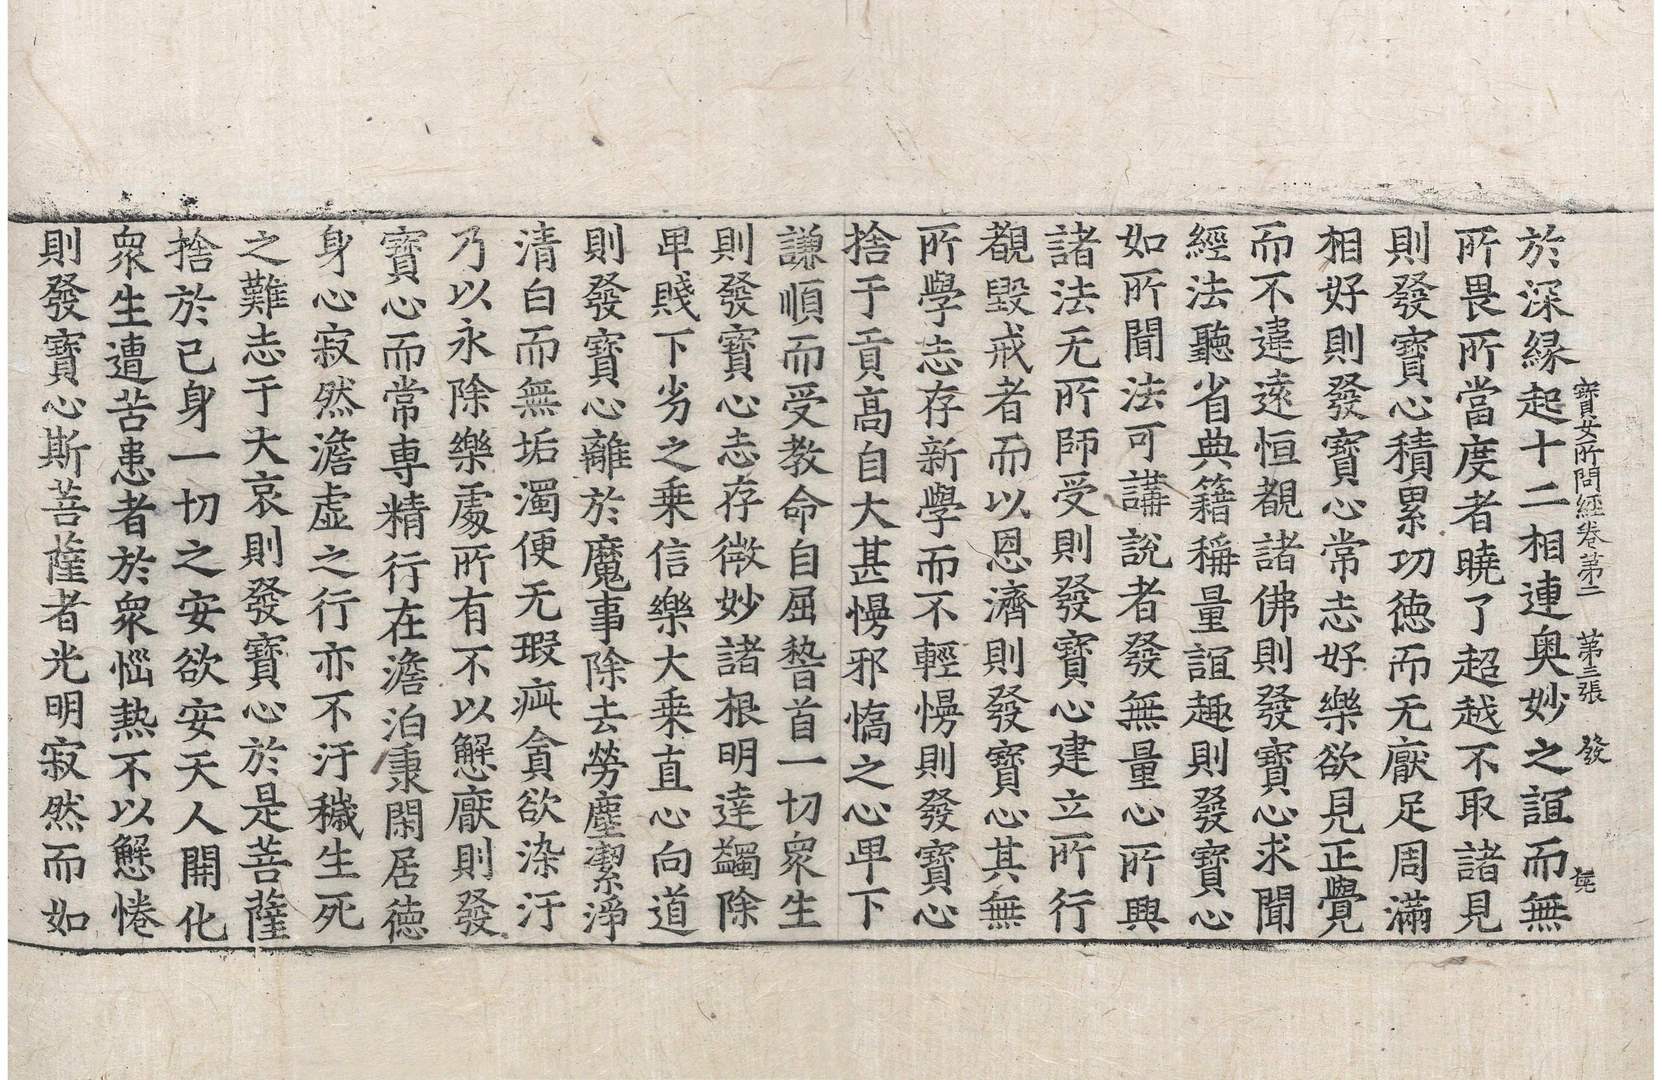 寶女所問經卷第二　第三張　發
於深緣起十二相連奥妙之誼而無
所畏所當度者曉了超越不取諸見
則發寶心積累功德而无猒足周滿
相好則發寶心常志好樂欲見正覺
而不違遠恒覩諸佛則發寶心求聞
經法聽省典籍稱量誼趣則發寶心
如所聞法可講說者發無量心所興
諸法无所師受則發寶心建立所行
覩毀戒者而以恩濟則發寶心其無
所學志存新學而不輕慢則發寶心
捨于貢高自大甚慢邪憍之心卑下
謙順而受教命自屈𥡴首一切衆生
則發寶心志存微妙諸根明達蠲除
卑賤下劣之乗信樂大乗直心向道
則發寶心離於魔事除去勞塵潔淨
清白而無垢濁便无瑕疵貪欲染汙
乃以永除樂處所有不以懈猒則發
寶心而常專精行在澹泊秉閑居德
身心寂然澹虛之行亦不汙穢生死
之難志于大哀則發寶心於是菩薩
捨於己身一切之安欲安天人開化
衆生遭苦患者於衆惱熱不以懈惓
則發寶心斯菩薩者光明寂然而如